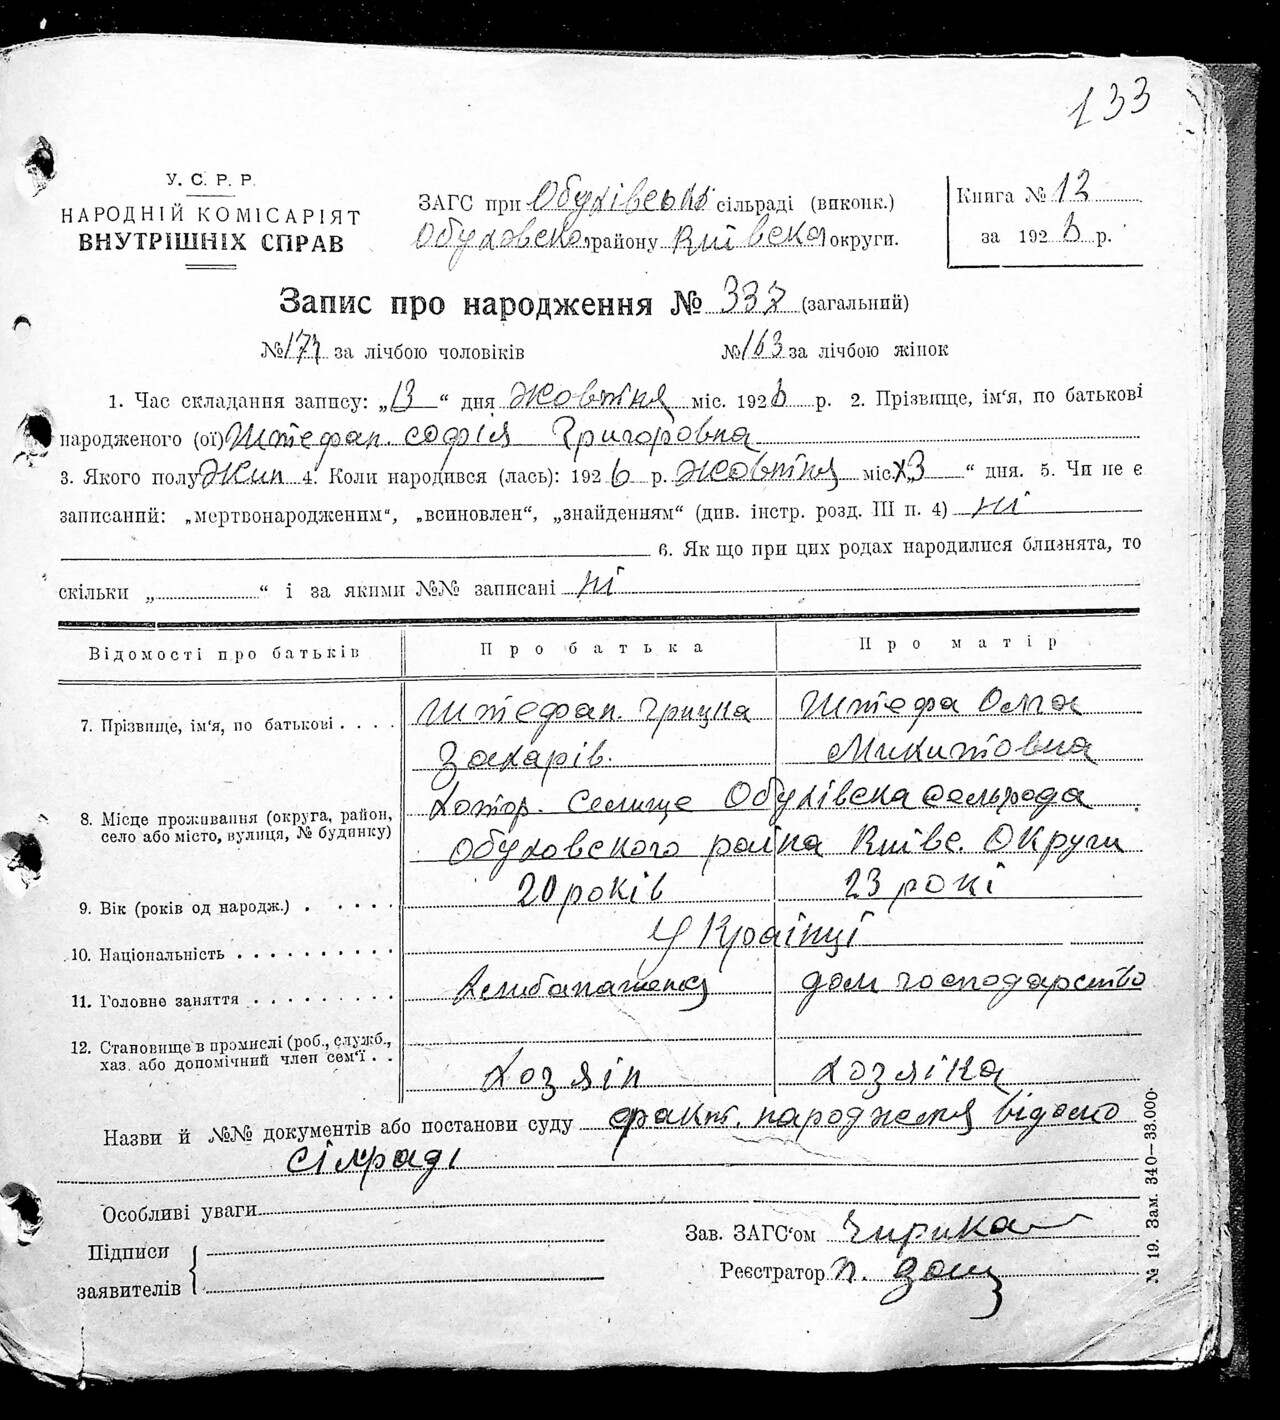 133
У. С. Р. Р.
НАРОДНІЙ КОМІСАРІЯТ
ВНУТРІШНІХ СПРАВ
ЗАГС при Обухівські сільраді (виконк.)
Обуховско району Київска округи.
Книга № 12
за 1926 р.
Запис про народження № 337 (загальний)
№ 174 за лічбою чоловіків № 163 за лічбою жінок
1. Час складання запису: „13“ дня Жовтня міс. 1926 р. 2. Прізвище, ім‘я, по батькові
народженого (ої) Штефан. софія Григоровна
3. Якого полу Жин 4. Коли народився (лась): 1926 р. Жовтня міс. 3 “ дня. 5. Чи не є
записаний: „мертвонародженим“, „всиновлен“, „знайденням“ (див. інстр. розд. III п. 4) ні
6. Як що при цих родах народилися близнята, то
скільки „ “ і за якими №№ записані ні
Відомості про батьків Про батька Про матір
7. Прізвище, ім‘я, по батькові . . . . Штефан. Грицка Штефа Олга
Захарів. Микитовна
8. Місце проживання (округа, район, село або місто, вулиця, № будинку) Хотор. Селище Обухівска сельрада
Обуховского раіна Київс. Округи
9. Вік (років од народж.) . . . . . 20 років 23 рокі
10. Національність . . . . . . . . . . Українці
11. Головне заняття . . . . . . . . . дом господарство
12. Становище в промислі (роб., служб.,
хаз. або допомічний член сем‘ї . . Хозяін Хозяіка
Назви й №№ документів або постанови суду факт. народженя відомо
сілраді
Особливі уваги
Підписи
заявителів
Зав. ЗАГС‘ом
Реєстратор
№ 19. Зам. 340—33.000.